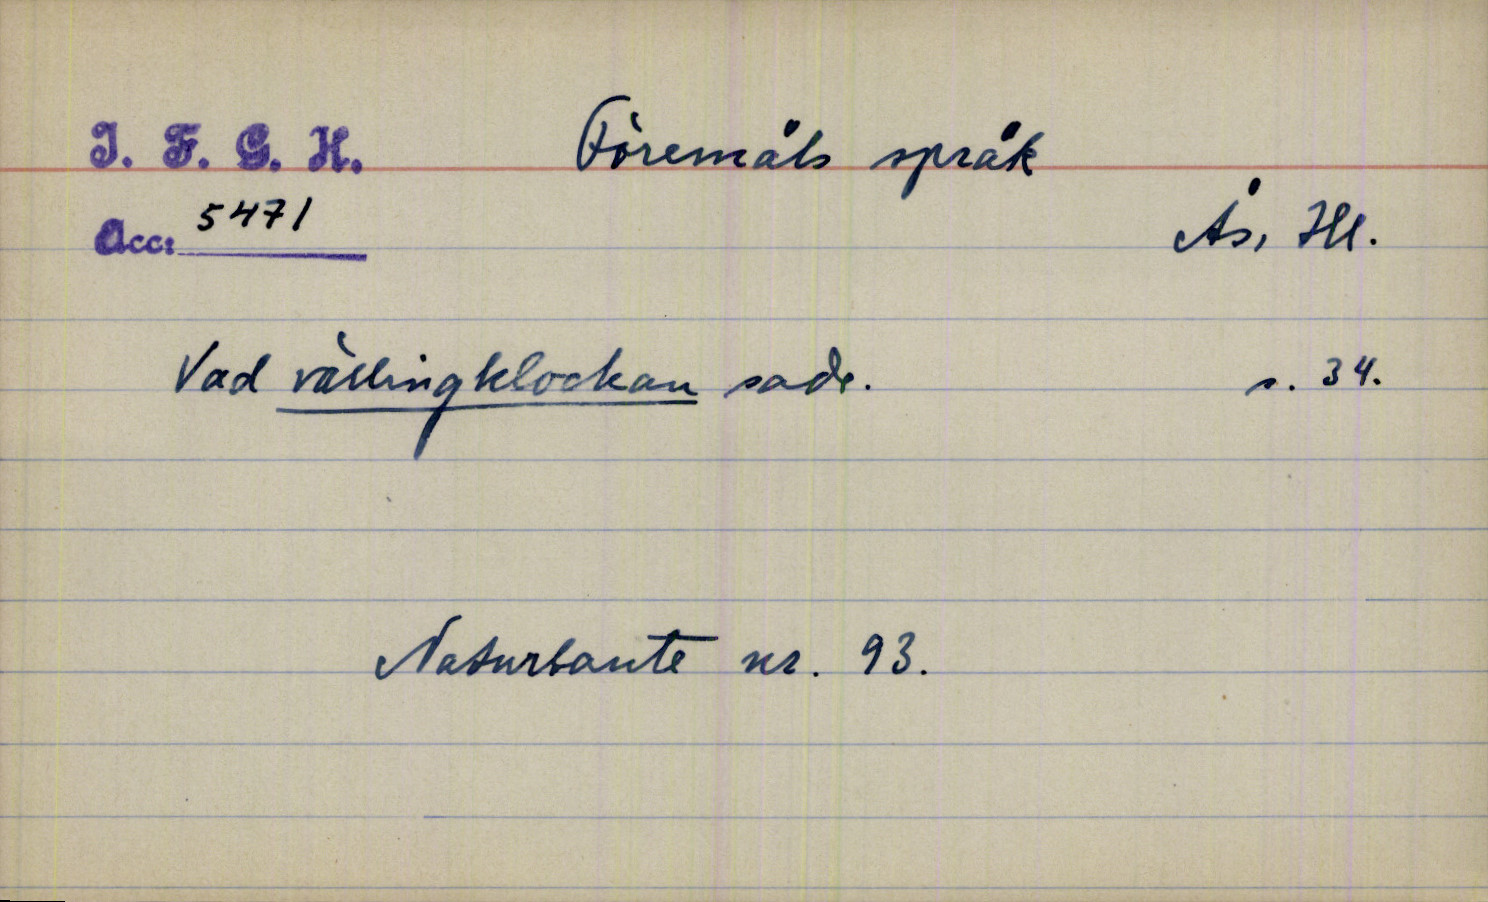 I. F. G. H.
Föremåls språk
Acc: 5471
Ås, Hl.
Vad vällingklockan sade. s. 34.
Naturlante nr. 93.